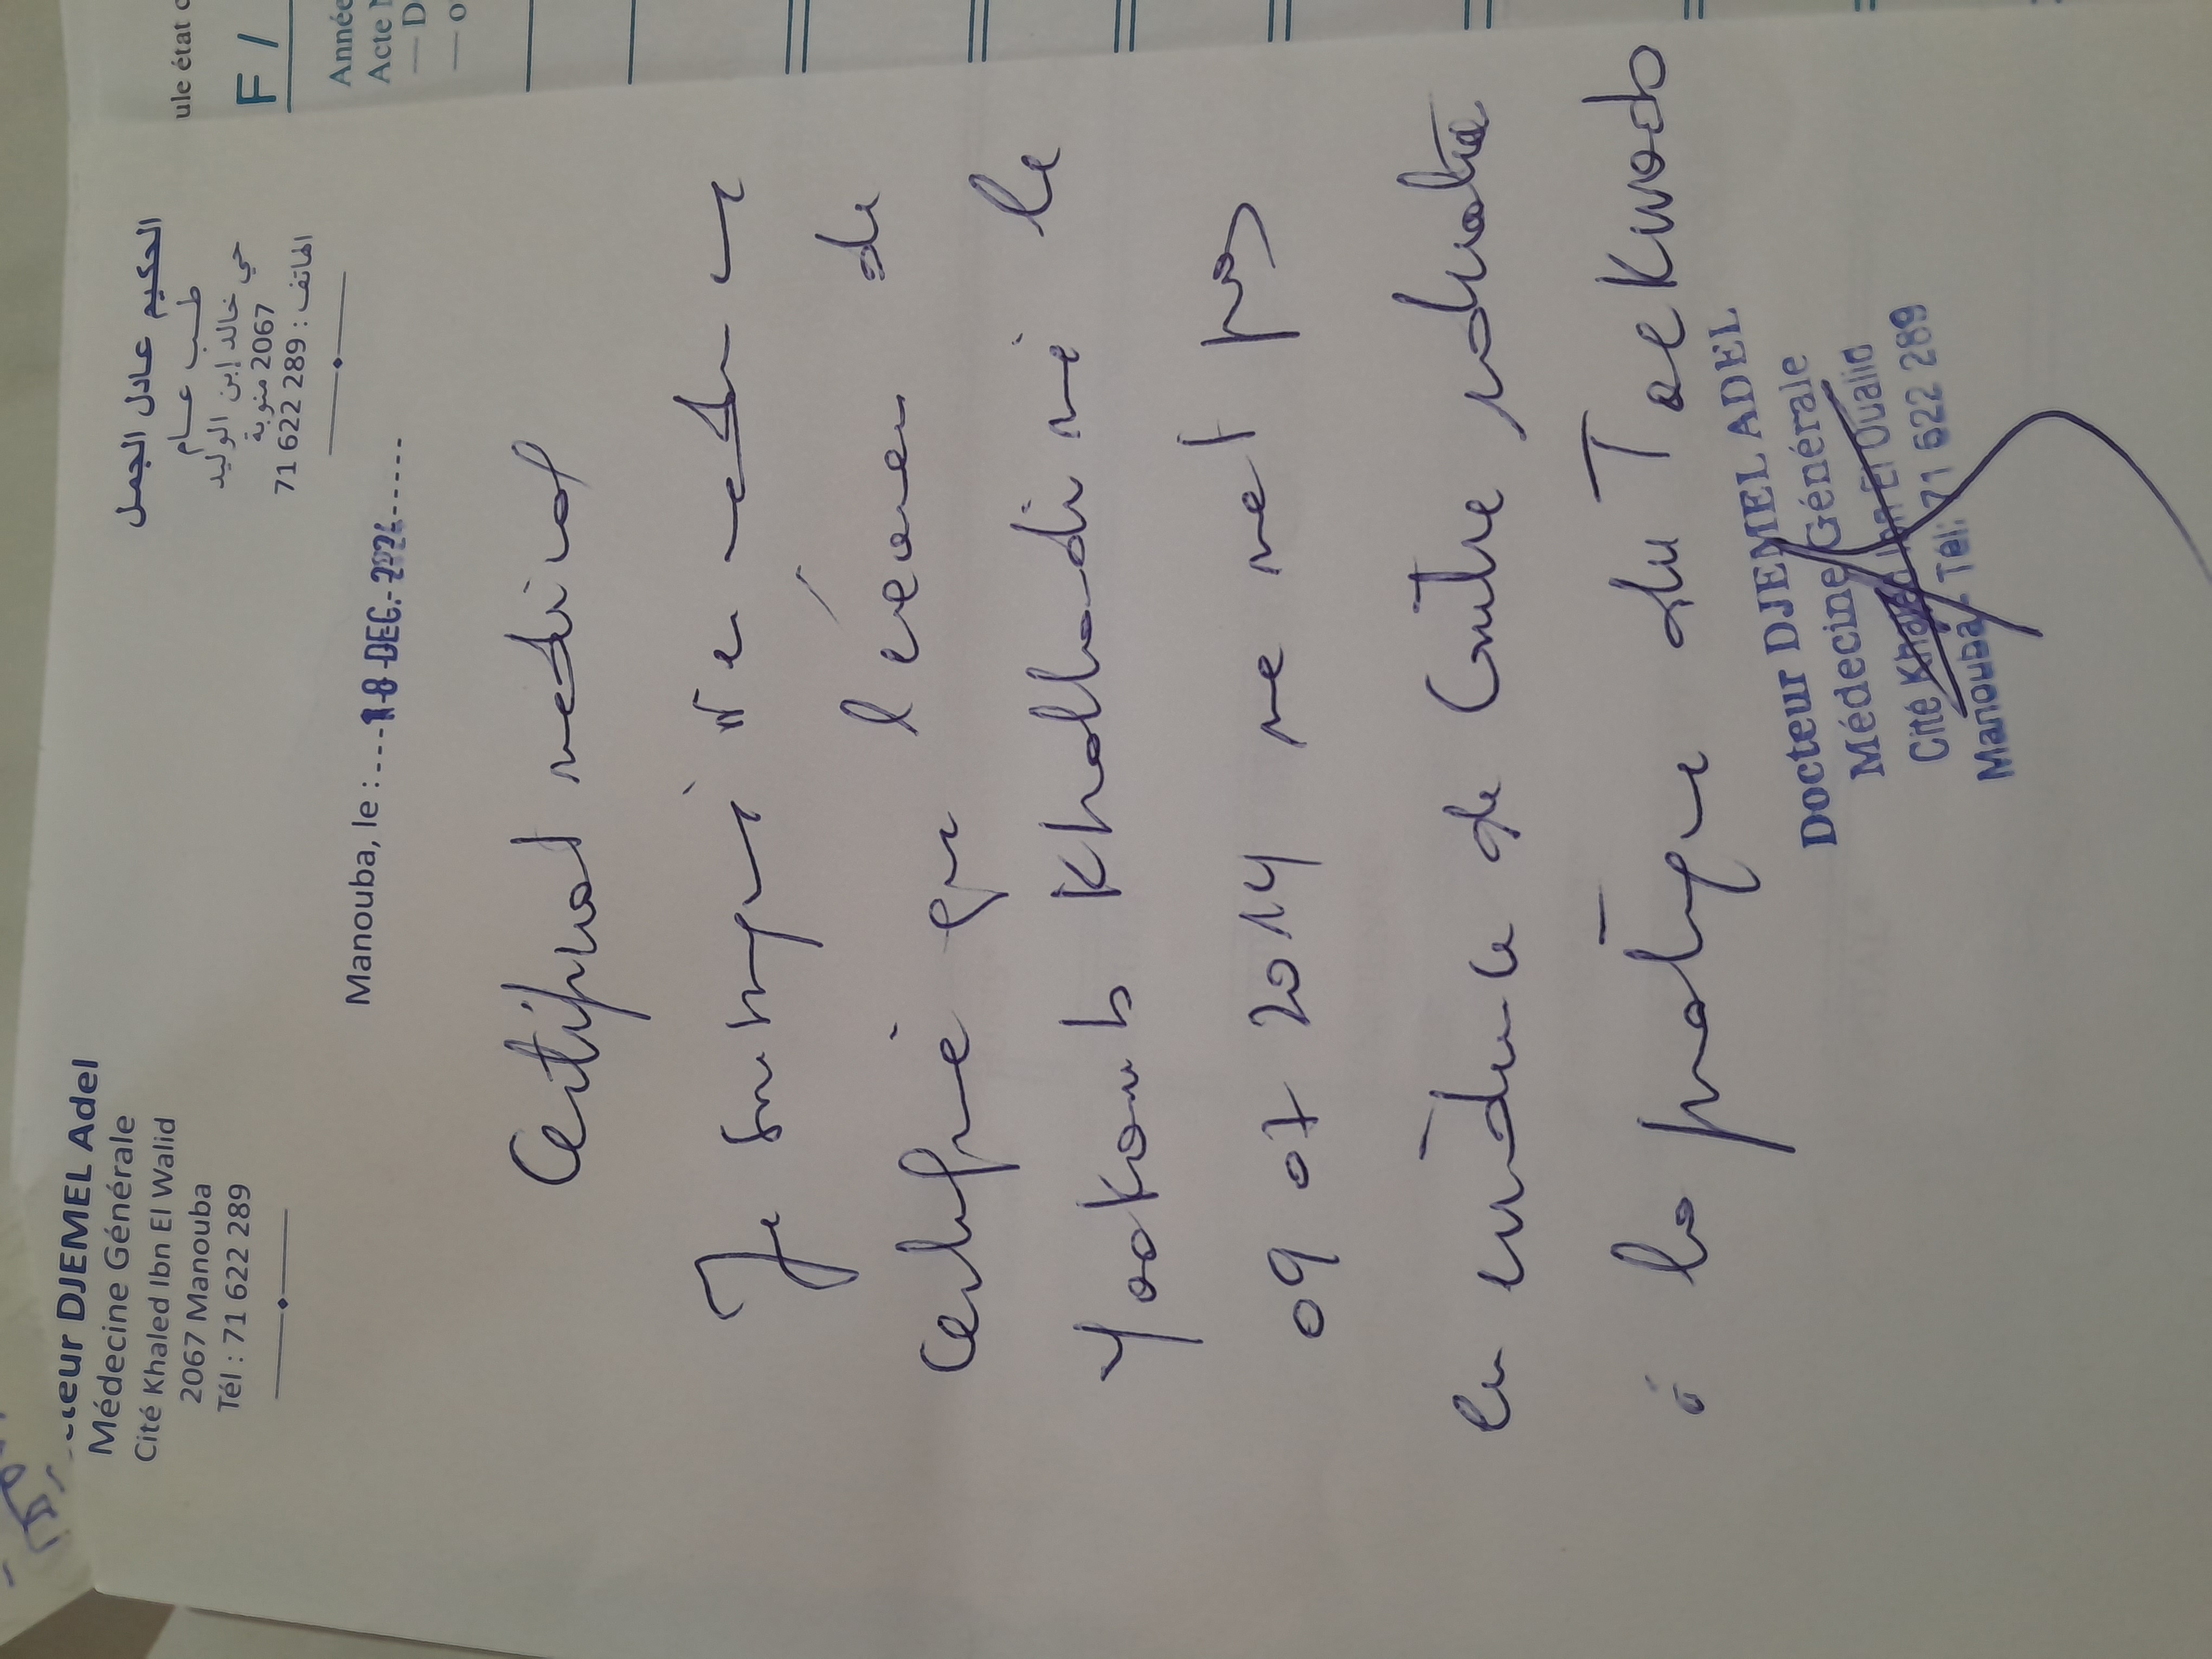 Docteur DJEMEL Adel
Médecine Générale
Cité Khaled Ibn El Walid
2067 Manouba
Tél : 71 622 289
الحكيم عادل الجمل
طب عام
حي خالد إبن الوليد
2067 منوبة
الهاتف : 71 622 289
Manouba, le : 18 DEC. 2024
Certificat medical
Je soussigné
certifie que l'examen de
Yakoub Khalladi né le
09 07 2014 ne met pas
en évidence de Contre indication
à la pratique du Taekwondo
Docteur DJEMEL ADEL
Médecine Générale
Cité Khaled Ibn El Oualid
Manouba - Tél: 71 622 289
ule état c
F /
Année
Acte N
— D
— o